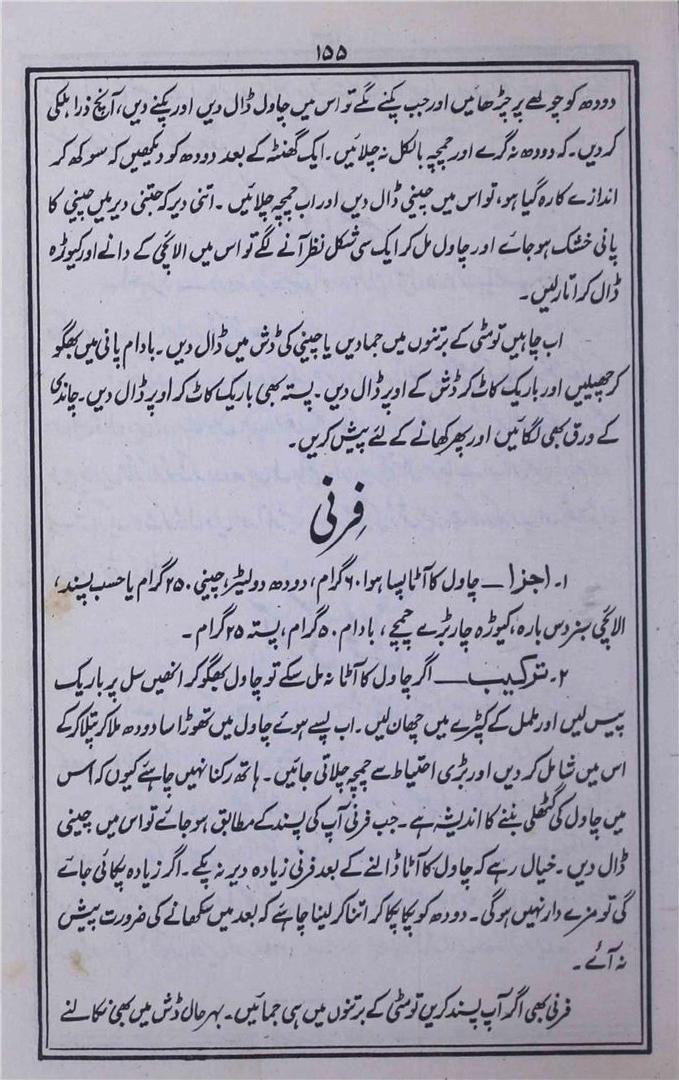 ۱۵۵
دودھ کو چولہے پر چڑھائیں اور جب پکنے لگے تو اس میں چاول ڈال دیں اور پکنے دیں، آنچ ذرا ہلکی
کر دیں۔ کہ دودھ نہ گرے اور چمچہ بالکل نہ چلائیں۔ ایک گھنٹہ کے بعد دودھ کو دیکھیں کہ سوکھ کر
اندازے کا رہ گیا ہو، تو اس میں چینی ڈال دیں اور اب چمچہ چلائیں۔ اتنی دیر کہ جتنی دیر میں چینی کا
پانی خشک ہو جائے اور چاول مل کر ایک سی شکل نظر آنے لگے تو اس میں الائچی کے دانے اور کیوڑہ
ڈال کر اتار لیں۔
اب چاہیں تو مٹی کے برتنوں میں جما دیں یا چینی کی ڈش میں ڈال دیں۔ بادام پانی میں بھگو
کر چھیلیں اور باریک کاٹ کر ڈش کے اوپر ڈال دیں۔ پستہ بھی باریک کاٹ کر اوپر ڈال دیں۔ چاندی
کے ورق بھی لگائیں اور پھر کھانے کے لئے پیش کریں۔
فِرنی
۱۔ اجزا — چاول کا آٹا پسا ہوا ۶۰ گرام، دودھ دو لیٹر، چینی ۲۵۰ گرام یا حسب پسند،
الائچی سبز دس بارہ، کیوڑہ چار بڑے چمچے، بادام ۵۰ گرام، پستہ ۲۵ گرام۔
۲۔ ترکیب — اگر چاول کا آٹا نہ مل سکے تو چاول بھگو کر انھیں سل پر باریک
پیس لیں اور ململ کے کپڑے میں چھان لیں۔ اب پسے ہوئے چاول میں تھوڑا سا دودھ ملا کر پتلا کر کے
اس میں شامل کر دیں اور بڑی احتیاط سے چمچہ چلاتی جائیں۔ ہاتھ رکنا نہیں چاہئے کیوں کہ اس
میں چاول کی گٹھلی بننے کا اندیشہ ہے۔ جب فرنی آپ کی پسند کے مطابق ہو جائے تو اس میں چینی
ڈال دیں۔ خیال رہے کہ چاول کا آٹا ڈالنے کے بعد فرنی زیادہ دیر نہ پکے۔ اگر زیادہ پکائی جائے
گی تو مزے دار نہیں ہوگی۔ دودھ کو پکا پکا کر اتنا کر لینا چاہئے کہ بعد میں سکھانے کی ضرورت پیش
نہ آئے۔
فرنی بھی اگر آپ پسند کریں تو مٹی کے برتنوں میں ہی جمائیں۔ بہر حال ڈش میں بھی نکالنے